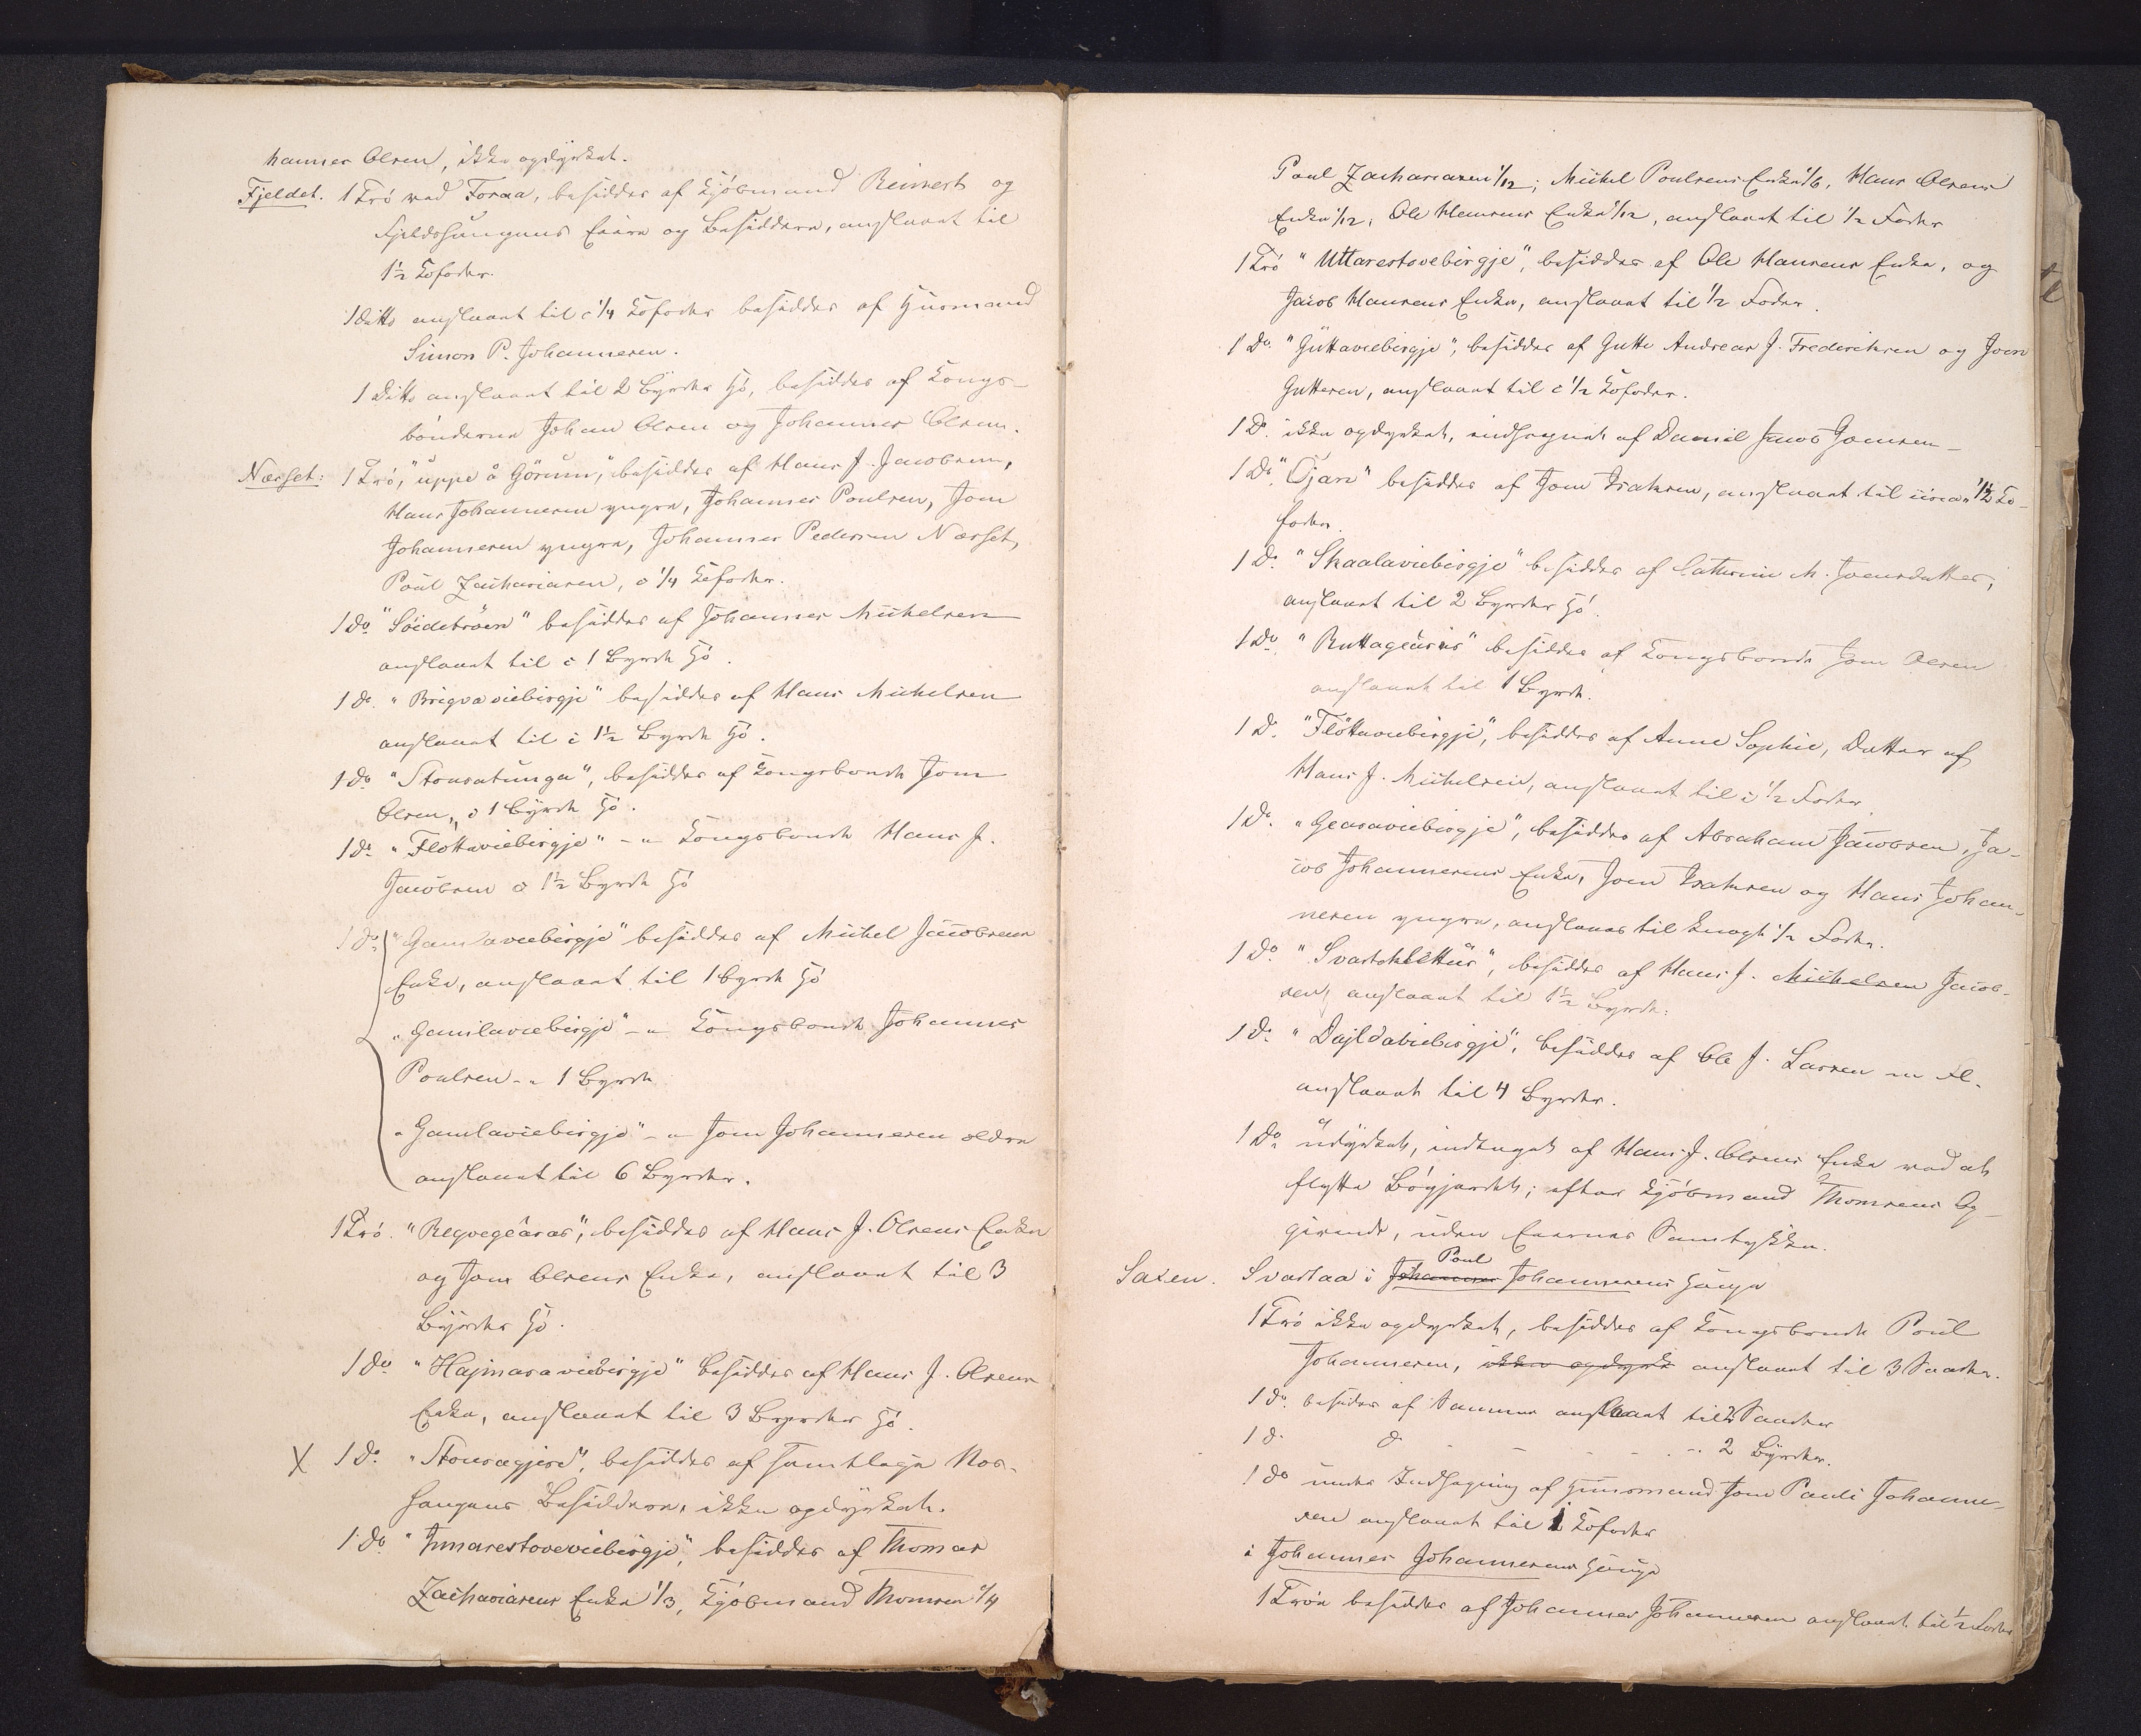 hannes Olsen, ikke opdyrket.
Fjeldet. 1 Trö ved Foraa, besiddes af Kjöbmand Reinert og
Fjeldshaugens Eiere og Besiddere, anslaaet til
1½ Kofoder.
1 Ditto anslaaet til c ¼ Kofoder besiddes af Huusmand
Simon P. Johannesen.
1 Ditto anslaaet til 2 Byrder Hö, besiddes af Kongs-
bönderne Johan Olsen og Johannes Olsen.
Næsset: 1 Trö, "uppe å Görum", besiddes af Hans J. Jacobsen,
Hans Johannesen yngre, Johannes Poulsen, Joen
Johannesen yngre, Johannes Pedersen Næsset,
Poul Zachariasen, c ¼ Kofoder.
1 do "Söidetröen" besiddes af Johannes Michelsen
anslaaet til c 1 Byrde Hö.
1 do. "Brigvaviebirgje" besiddes af Hans Michelsen
anslaaet til c 1½ Byrde Hö.
1 do "Stouratunga", besiddes af Kongsbonde Joen
Olsen, c 1 Byrde Hö.
1 do. "Flottaviebirgje" - " - Kongsbonde Hans J.
Jacobsen c 1½ Byrde Hö
1 do. "Gamlaviebirgje" besiddes af Michel Jacobsens
Enke, anslaaet til 1 Byrde Hö
"Gamlaviebirgje" - " - Kongsbonde Johannes
Poulsen - " 1 Byrde
"Gamlaviebirgje" - " - Joen Johannesen ældre
anslaaet til 6 Byrder.
1 Trö. "Regvegearas", besiddes af Hans J. Olsens Enke
og Joen Olsens Enke, anslaaet til 3
Byrder Hö.
1 do. "Hajmaraviebirgje" besiddes af Hans J. Olsens
Enke, anslaaet til 3 Byrder Hö.
X 1 do. "Stouragjerd", besiddes af samtlige
Besiddere, ikke opdyrket.
1 do. "Innarestoveviebirgje", besiddes af Thomas
Zachariasens Enke 1/3, Kjöbmand Thomsen ¼
Poul Zachariasen 1/12; Michel Poulsens Enke 1/6, Hans Olsens
Enke 1/12, Ole Hansens Enke 1/12, anslaaet til ½ Foder
1 Trö "Uttarestovebirgje", besiddes af Ole Hansens Enke, og
Jacob Hansens Enke, anslaaet til ½ Foder.
1 Do. "Guttaviebirgje", besiddes af Gutte Andreas J. Frederiksen og Joen
Guttesen, anslaaet til c ½ Kofoder.
1 D. ikke opdyrket, indhegnet af Daniel Jacob Joensen
1 Do. "Tjarn" besiddes af Joen Isaksen, anslaaet til circa 1½ Ko-
foder.
1 D. "Skaalaviebirgje" besiddes af Cathrine M. Joensdatter,
anslaaet til 2 Byrder Hö.
1 Do. "Ruttagearas" besiddes af Kongsbonde Joen Olsen
anslaaet til 1 Byrde.
1 D. "Flöttaviebirgje", besiddes af Anne Sophie, Datter af
Hans J. Michelsen, anslaaet til c ½ Foder.
1 Do. "Gearaviebirgje", besiddes af Abraham Jacobsen, Ja-
cob Johannesens Enke, Joen Isaksen og Hans Johan-
nesen yngre, anslaaes til knapt ½ Foder.
1 Do. "Svartaklettur", besiddes af Hans J. Michelsen Jacob-
sen, anslaaet til 1½ Byrde.
1 Do. "Dajldaviebirgje", besiddes af Ole J. Larsen
anslaaet til 4 Byrder.
1 Do. udyrket, indtaget af Hans J. Olsens Enke ved at
flytte Bögjærdet; efter Kjöbmand Thomsens Op-
givende, uden Eiernes Samtykke.
Saxen. Svartaa i Johannes Poul Johannesens Hauge
1 Trö ikke opdyrket, besiddes af Kongsbonde Poul
Johannesen, ikke opdyrk anslaaet til 3 Saader.
1 do. besiddes af Samme anslaaet til 2 Saader
1 d. d. - - - - - 2 Byrder.
1 do under Indhegning af Huusmand Joen Pauli Johanne-
sen anslaaet til 1 Kofoder
i Johannes Johannesens Hauge
1 Tröe besiddes af Johannes Johannesen anslaaet til ½ Foder